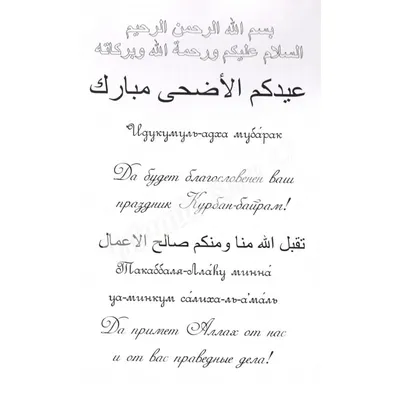 بسم الله الرحمن الرحيم
السلام عليكم ورحمة الله وبركاته
عيدكم الأضحى مبارك
Идукумуль-адха муба́рак
Да будет благословенен ваш
праздник Курбан-байрам!
تقبل الله منا ومنكم صالح الاعمال
Такаббаля-Ллаḣу минна́
уа-минкум са́лиха-ль-а'ма́ль
Да примет Аллах от нас
и от вас праведные дела!